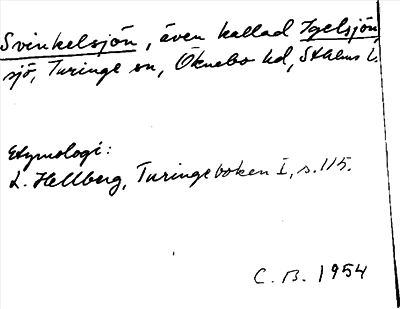 Svinkelsjön, även kallad Igelsjön,
sjö, Turinge sn, Öknebo hd, Sthlms l.
Etymologi:
L. Hellberg, Turingeboken I, s. 115.
C. B. 1954